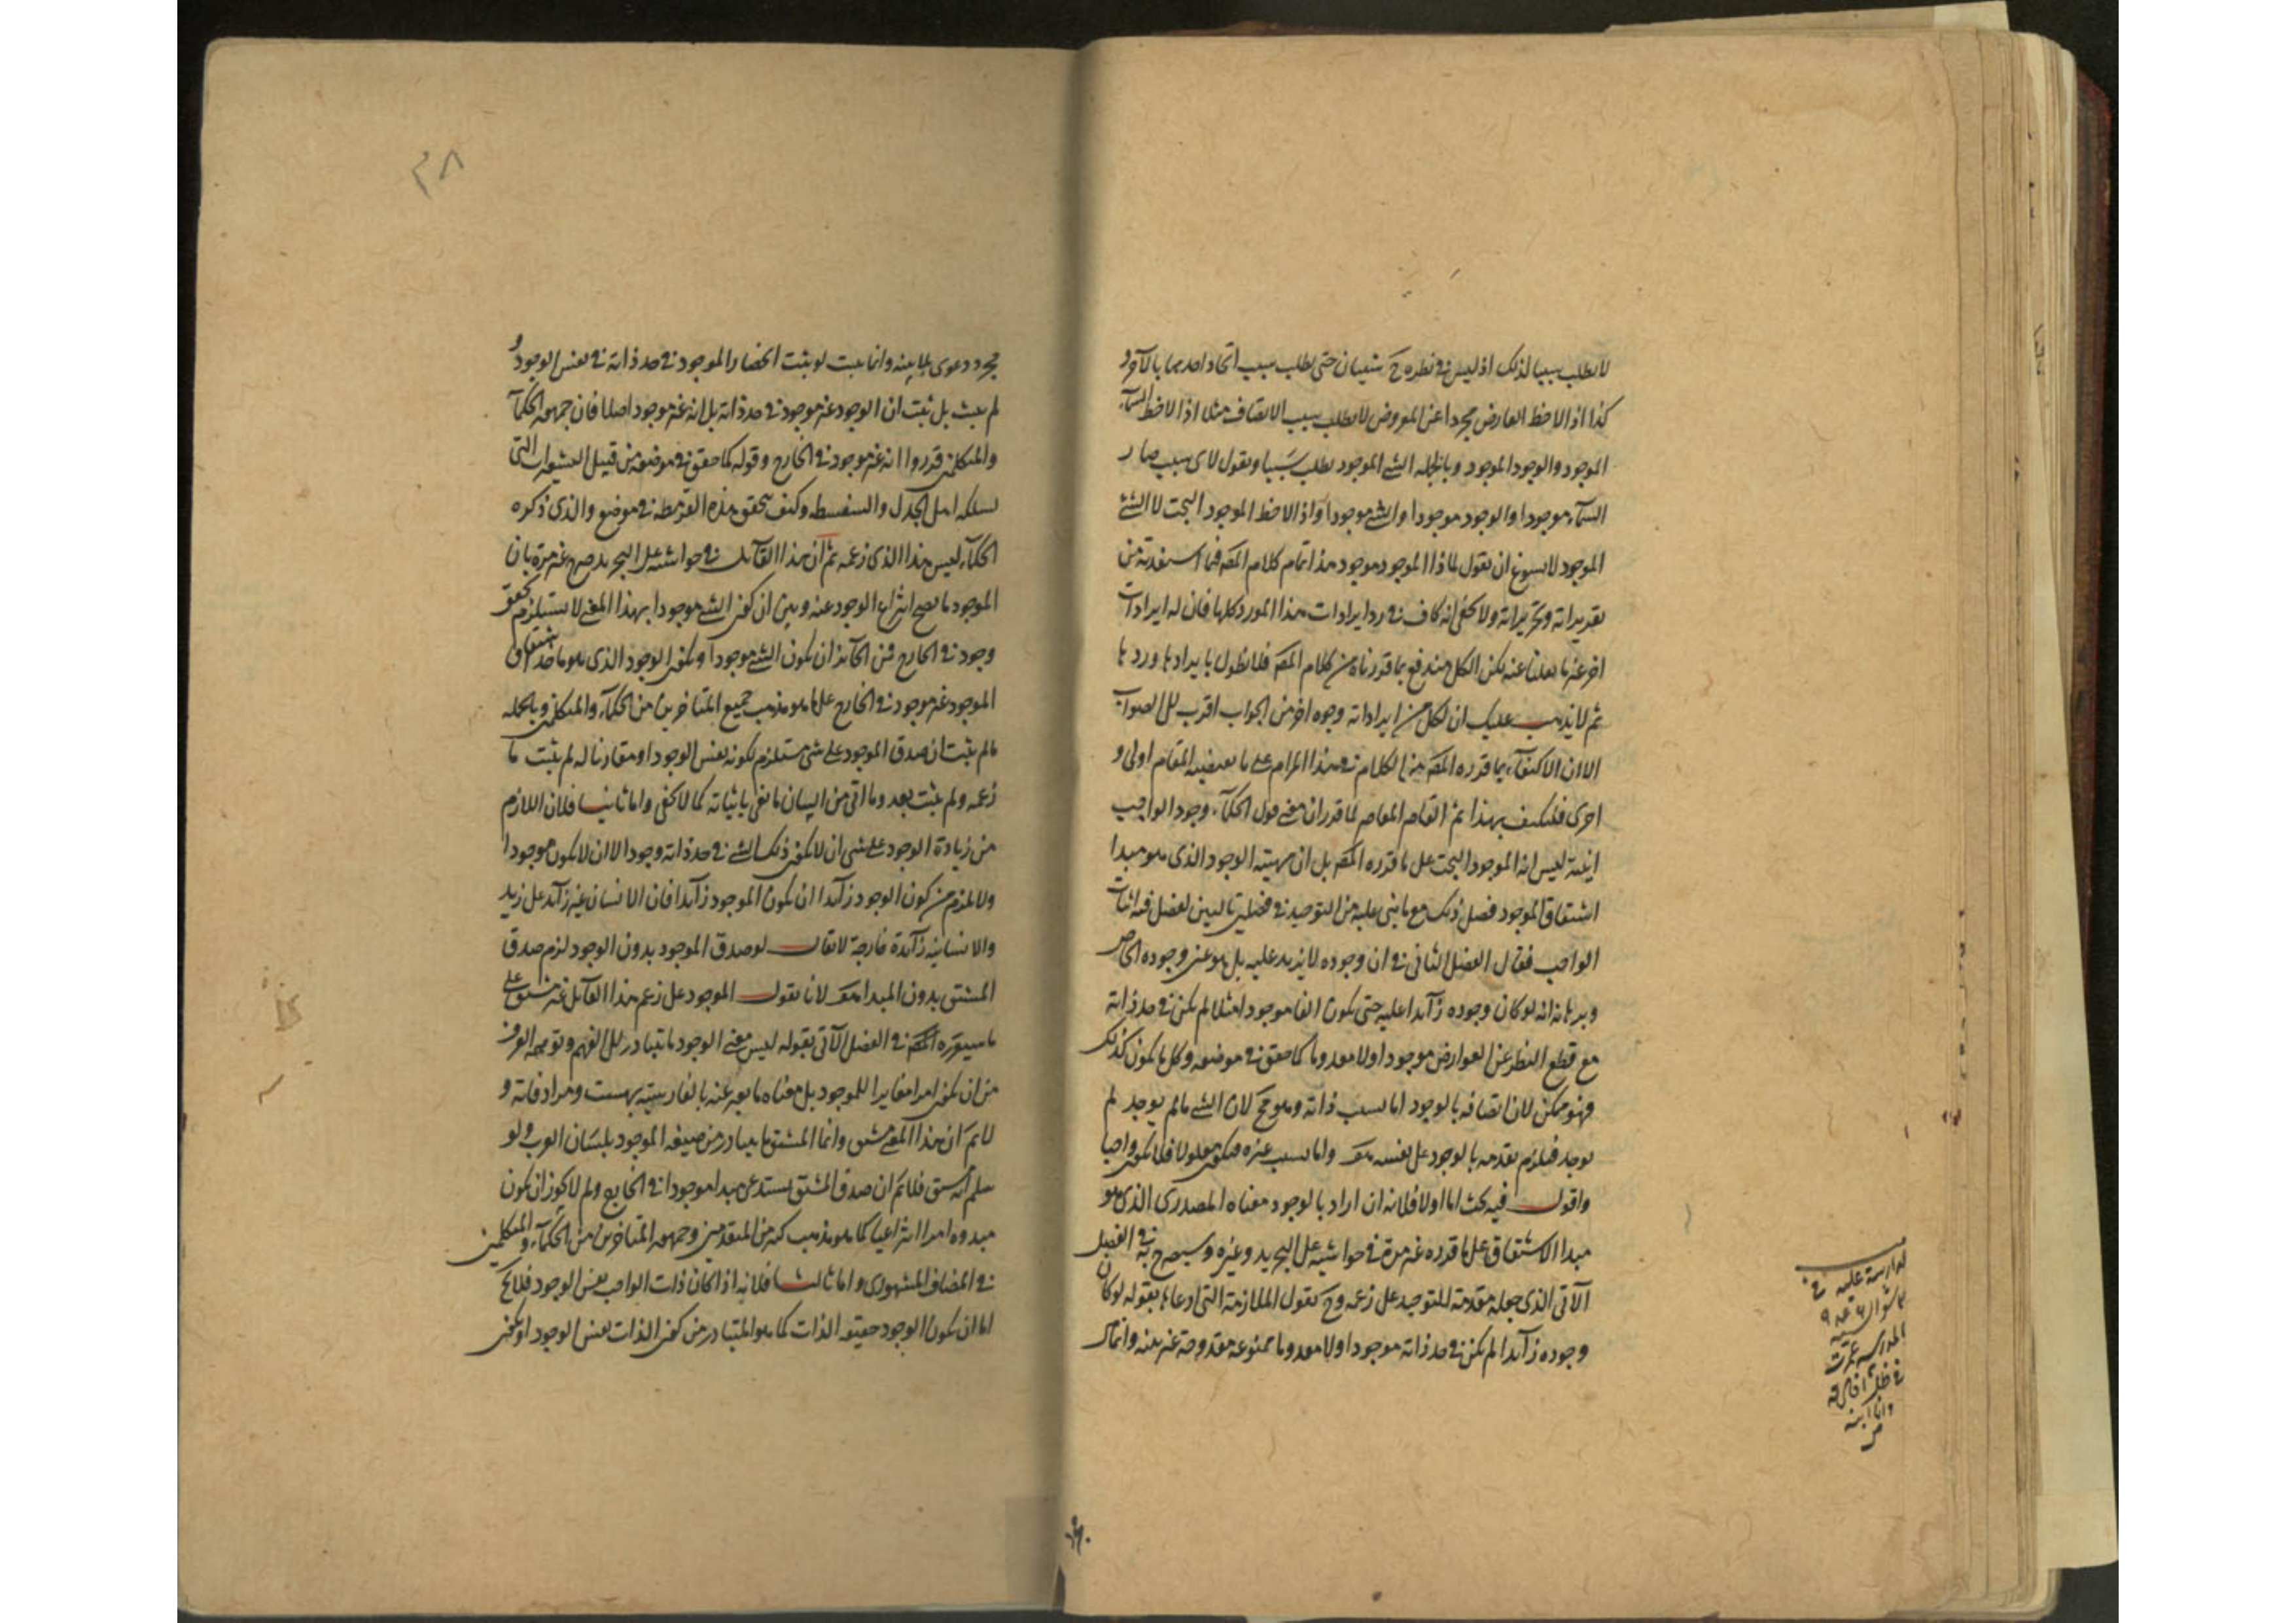 لا يطلب سببا لذلك اذ ليس في نظره ح شيئان حتى يطلب سبب اتحاد احدهما بالآخر و
كذا اذا لاحظ العارض مجردا عن المعروض لا يطلب سبب الاتصاف مثلا اذا لاحظ السماء
الموجود والوجود الموجود وبالجمله الشئ الموجود يطلب سببا ويقول لاى سبب صار
السماء موجودا والوجود موجودا والشئ موجودا واذا لاحظ الموجود البحت لا الشئ
الموجود لا يسوغ ان يقول لماذا الموجود موجود هذا تمام كلام المصه فما استفدته من
تقريراته وتحريراته ولا يخفى انه كاف في رد ايرادات هذا المورد كلها فان له ايرادات
اخر غير ما نقلنا عنه لكن الكل مندفع بما قررناه من كلام المصه فلا نطول بايرادها وردها
ثم لا يذهب عليك ان لكل من ايراداته وجوه اخر من الجواب اقرب الى الصواب
الا ان الاكتفاء بما قرره المصه من الكلام في هذا المرام على ما يقتضيه المقام اولى و
احرى فلنكتف بهذا ثم القاصر المعاصر لما قرر ان معنى قول الحكماء وجود الواجب
عينه ليس انه الموجود البحت على ما قرره المصه بل ان مهيته الوجود الذى هو مبدا
اشتقاق الموجود فصل ذلك مع ما بنى عليه من التوحيد في فصلين تاليين لفصل فيه اثبات
الواجب فقال الفصل الثانى في ان وجوده لا يزيد عليه بل هو عين وجوده الخاص
وبرهانه انه لو كان وجوده زآئدا عليه حتى يكون الفا موجودا مثلا لم يكن في حد ذاته
مع قطع النظر عن العوارض موجودا ولا معدوما كما حقق في موضعه وكل ما يكون كذلك
فهو ممكن لان اتصافه بالوجود اما بسبب ذاته وهو مح لان الشئ ما لم يوجد لم
يوجد فيلزم تقدمه بالوجود على نفسه هف واما بسبب غيره فيكون معلولا فلا يكون واجبا
واقول فيه بحث اما اولا فلانه ان اراد بالوجود معناه المصدرى الذى هو
مبدا الاشتقاق على ما قرره غير مرة في حواشيه على التجريد وغيره وسيصرح به في الفصل
الآتى الذى جعله مقدمة للتوحيد على زعمه وح يقول الملازمة التى ادعاها بقوله لو كان
وجوده زآئدا لم يكن في حد ذاته موجودا ولا معدوما ممنوعه مقدوحة غير بينه وانما
في
شوال سنه
مجرد دعوى بلا بينه وانما يثبت لو يثبت انحصار الموجود في حد ذاته في نفس الوجود و
لم يثبت بل يثبت ان الوجود غير موجود في حد ذاته بل انه غير موجود اصلا فان جمهور الحكماء
والمتكلمين قرروا انه غير موجود في الخارج وقوله كما حقق في موضعه من قبيل التى
يسلكه اهل الجدل والسفسطه وكيف يحقق هذه في موضع والذى ذكره
الحكماء ليس هذا الذى زعمه ثم ان هذا القآئل في حواشيه على التجريد صرح غير مرة بان
الموجود ما يصح انتزاع الوجود عنه وبين ان كون الشئ موجودا بهذا المعنى لا يستلزم تحقق
وجود في الخارج فمن الجآئز ان يكون الشئ موجودا ويكون الوجود الذى هو ماخذ اشتقاق
الموجود غير موجود في الخارج على ما هو مذهب جميع المتاخرين من الحكماء والمتكلمين وبالجمله
ما لم يثبت ان صدق الموجود على شئ مستلزم لكونه نفس الوجود او مقارنا له لم يثبت ما
زعمه ولم يثبت بعد وما اتى من البيان ما يفى باثباته كما لا يخفى واما ثانيا فلان اللازم
من زيادة الوجود على شئ ان لا يكون ذلك الشئ في حد ذاته وجودا لا ان لا يكون موجودا
ولا يلزم من كون الوجود زآئدا ان يكون الموجود زآئدا فان الانسان غير زآئد على زيد
والانسانية زآئدة خارجة لا يقال لو صدق الموجود بدون الوجود لزم صدق
المشتق بدون المبدا هف لانا نقول الموجود على زعم هذا القآئل غير مشتق على
ما سيقرره المصه في الفصل الآتى بقوله ليس معنى الوجود ما يتبادر الى الفهم العرف
من ان يكون امرا مغايرا للموجود بل معناه ما يعبر عنه بالفارسية بهست ومرادفاته و
لا نم ان هذا المعنى مشتق وانما المشتق ما يتبادر من صيغه الموجود بلسان العرب ولو
سلم انه مشتق فلا نم ان صدق المشتق يستدعى مبدا موجودا في الخارج ولم لا يجوز ان يكون
مبدوه امرا انتزاعيا كما هو مذهب كثير من المتقدمين وجمهور المتاخرين من الحكماء والمتكلمين
في المضاف المشهورى واما ثالثا فلانه اذا كان ذات الواجب نفس الوجود فلا يخ
اما ان يكون الوجود حقيقه الذات كما هو المتبادر من كون الذات نفس الوجود او يكون
٣٨